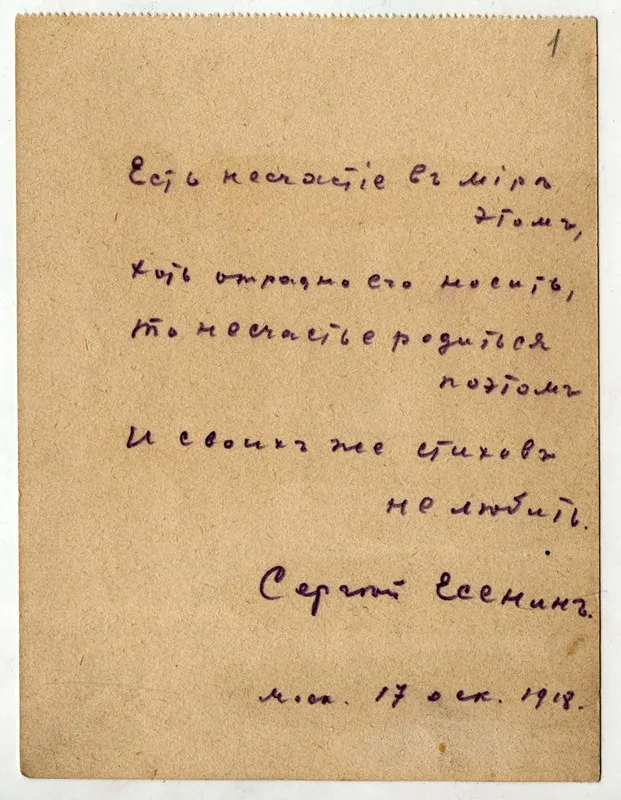 1
Есть несчастіе въ міръ
этомъ,
хоть отрадно его носить,
то несчастье родиться
поэтомъ
И своихъ же стиховъ
не любить.
Сергѣй Есенинъ.
Моск. 17 оск. 1918.